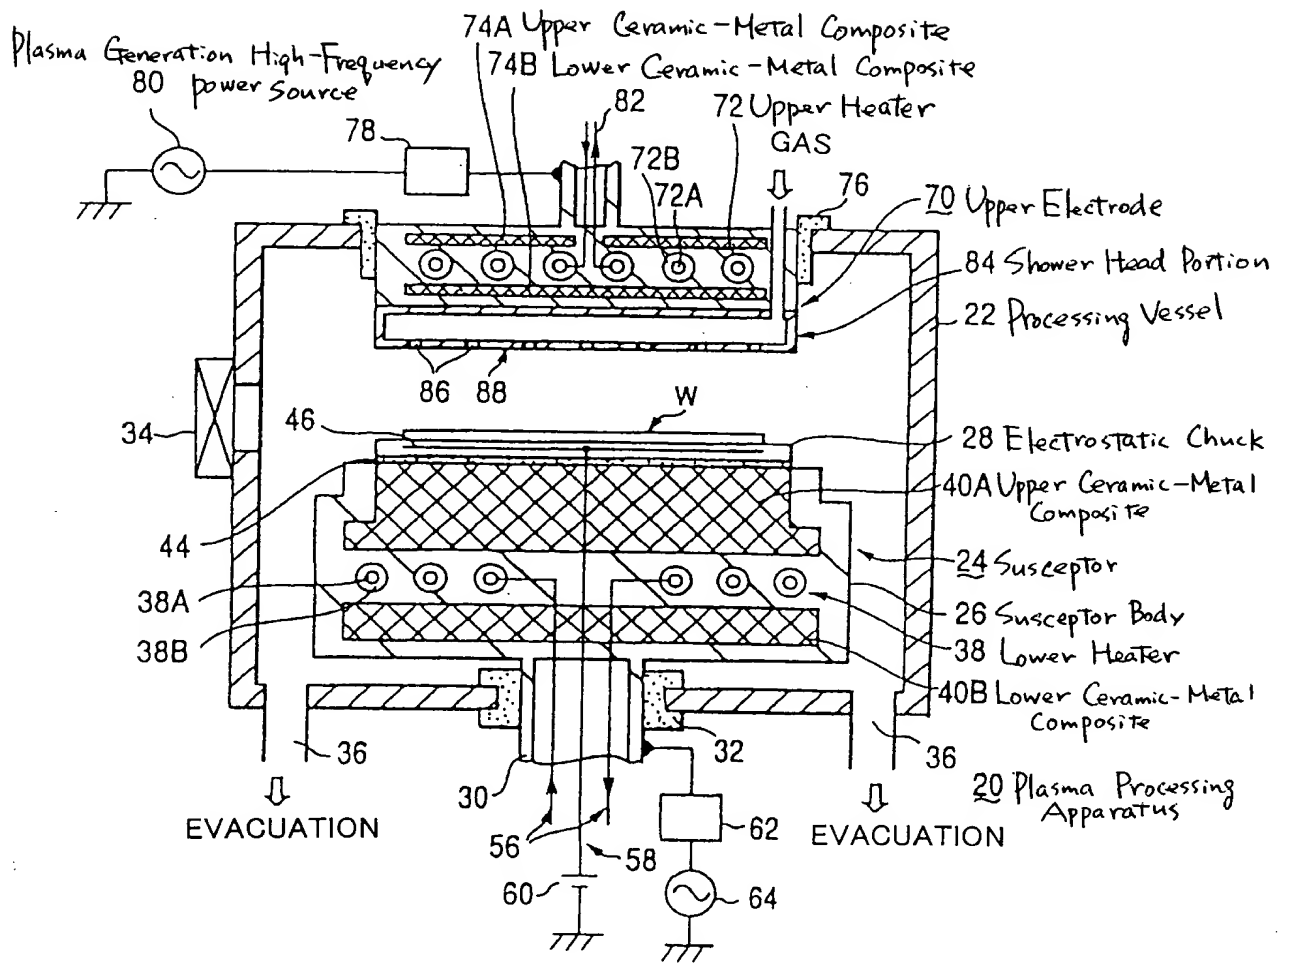 74A Upper Ceramic-Metal Composite
Plasma Generation High-Frequency
power source
80
74B Lower Ceramic-Metal Composite
82
72 Upper Heater
78
GAS
72B
72A
76
70 Upper Electrode
84 Shower Head Portion
22 Processing Vessel
86
88
W
34
46
28 Electrostatic Chuck
40A Upper Ceramic-Metal
Composite
44
24 Susceptor
38A
26 Susceptor Body
38B
38 Lower Heater
40B Lower Ceramic-Metal
Composite
36
32
36
30
20 Plasma Processing
Apparatus
EVACUATION
56
58
62
EVACUATION
60
64